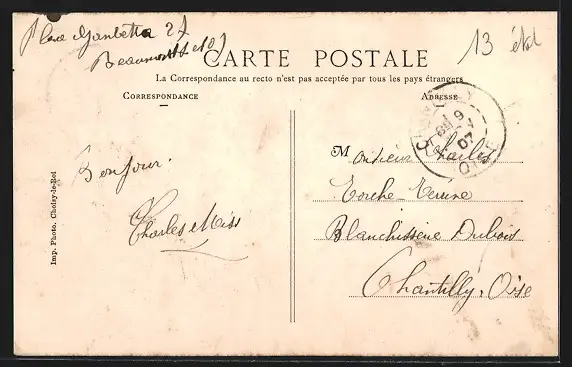 Place Gambetta 27
Beaumont s/ Oise
13 états
CARTE POSTALE
La Correspondance au recto n'est pas acceptée par tous les pays étrangers
CORRESPONDANCE
ADRESSE
Bonjour.
Charles Miss
Monsieur Charles
Torche-Terrine
Blanchisserie Dubois
Chantilly. Oise
Imp. Photo. Choisy-le-Roi